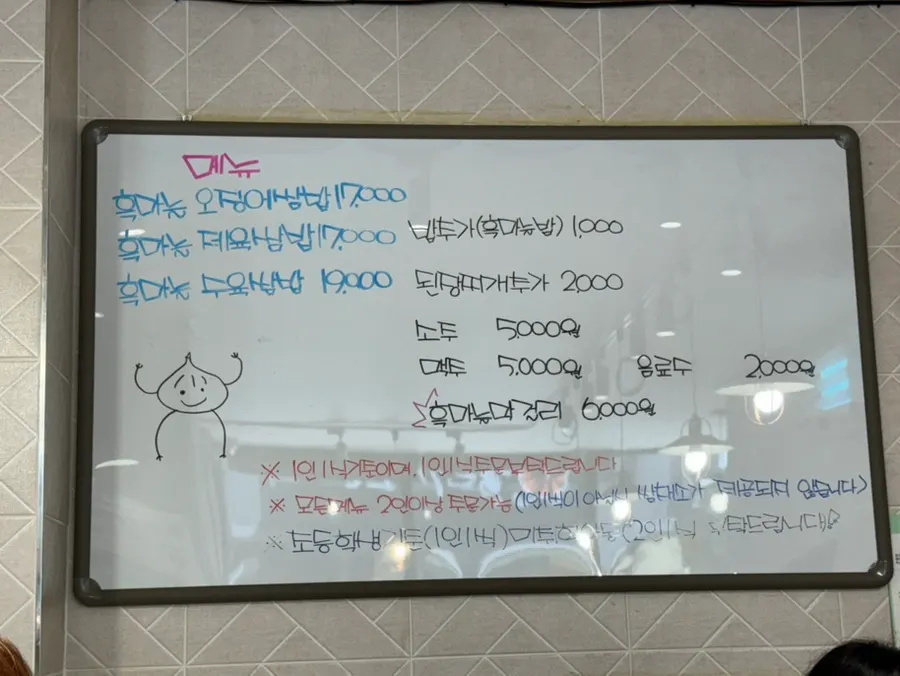 메뉴
흑마늘 오징어쌈밥 17,000
흑마늘 제육쌈밥 17,000
흑마늘 수육쌈밥 19,000
밥추가(흑마늘밥) 1,000
된장찌개추가 2,000
소주 5,000원
맥주 5,000원 음료수 2,000원
흑마늘막걸리 6,000원
※ 1인1식기준이며, 1인1식주문부탁드립니다
※ 모든메뉴 2인이상 주문가능 (1인1식이 아닐시 쌈채소가 제공되지 않습니다)
※ 초등학생기준(1인1식) 미취학아동(2인1식 부탁드립니다)